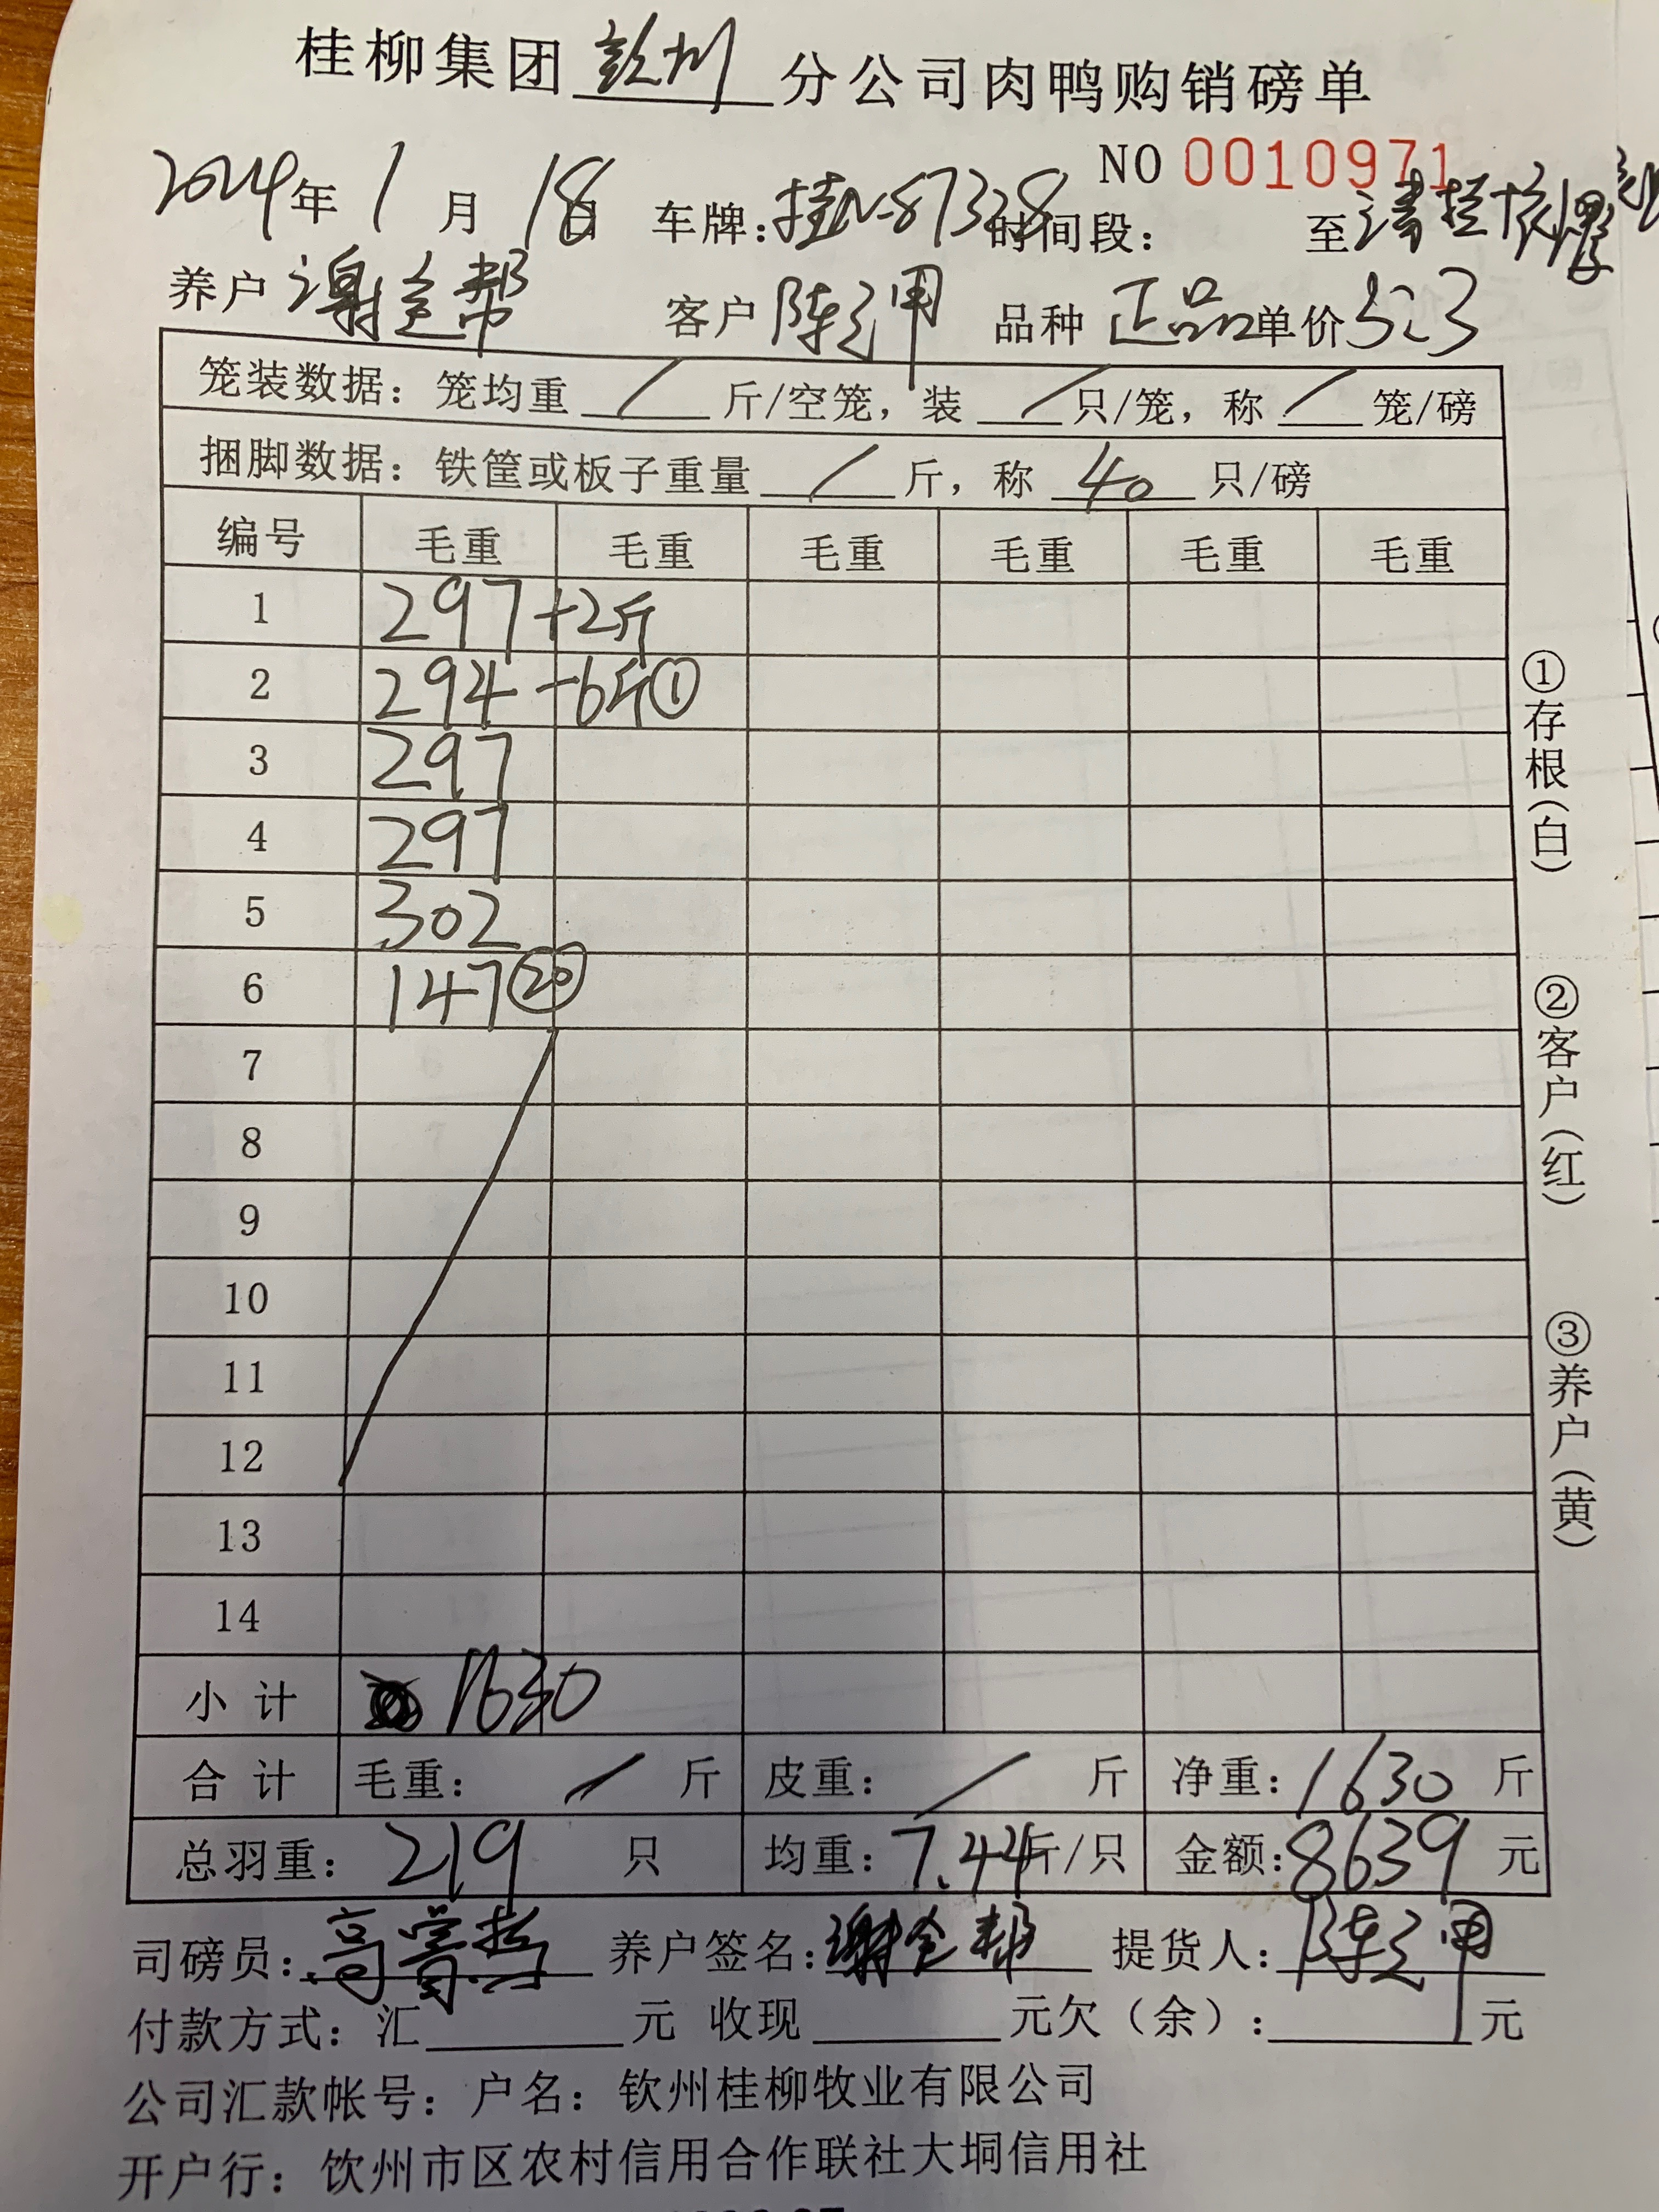 桂柳集团 钦州 分公司肉鸭购销磅单
NO 0010971
2024年 1 月 18日 车牌：桂N-87328 时间段： 至
养户 谢全帮 客户 陈之甲 品种 正品 单价 5.3
笼装数据：笼均重 / 斤/空笼，装 / 只/笼，称 / 笼/磅
捆脚数据：铁筐或板子重量 / 斤，称 40 只/磅
编号 毛重 毛重 毛重 毛重 毛重 毛重
1 297 +2斤
2 294 -6斤①
3 297
4 297
5 302
6 147 ⑳
7
8
9
10
11
12
13
14
小计 1630
合计 毛重： / 斤 皮重： / 斤 净重：1630 斤
总羽重： 219 只 均重：7.44斤/只 金额：8639 元
司磅员： 养户签名：谢全帮 提货人：陈之甲
付款方式：汇 元 收现 元欠（余）： 元
公司汇款帐号：户名：钦州桂柳牧业有限公司
开户行：钦州市区农村信用合作联社大垌信用社
①存根（白）
②客户（红）
③养户（黄）